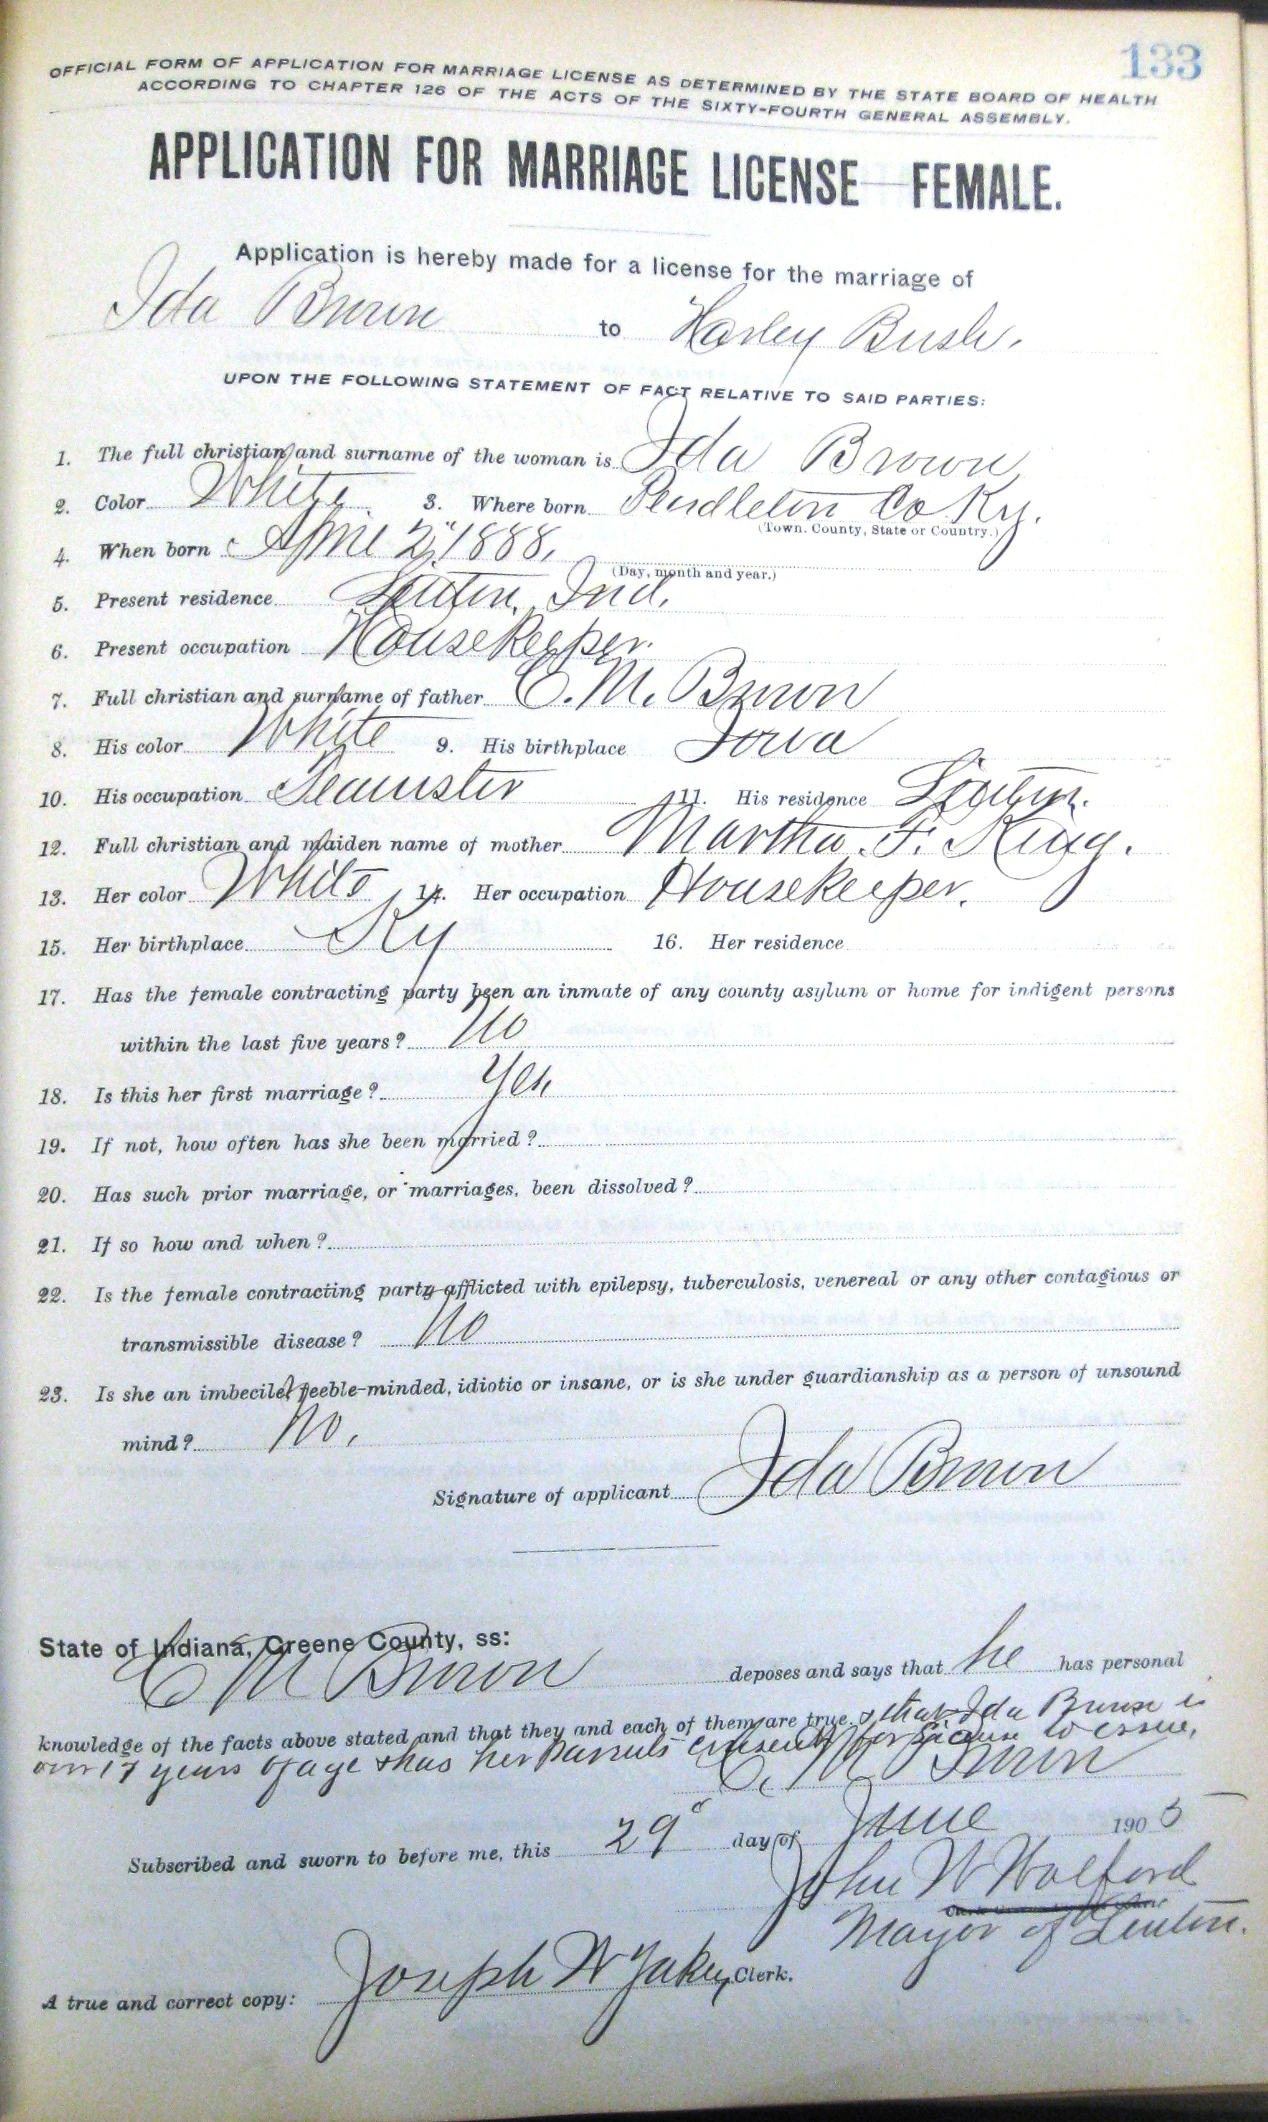 133
OFFICIAL FORM OF APPLICATION FOR MARRIAGE LICENSE AS DETERMINED BY THE STATE BOARD OF HEALTH
ACCORDING TO CHAPTER 126 OF THE ACTS OF THE SIXTY-FOURTH GENERAL ASSEMBLY.
APPLICATION FOR MARRIAGE LICENSE—FEMALE.
Application is hereby made for a license for the marriage of
Ida Brown to Harley Bush.
UPON THE FOLLOWING STATEMENT OF FACT RELATIVE TO SAID PARTIES:
1. The full christian and surname of the woman is Ida Brown
2. Color White 3. Where born Pendleton Co Ky.
(Town. County, State or Country.)
4. When born April 2, 1888,
(Day, month and year.)
5. Present residence Linton, Ind,
6. Present occupation Housekeeper.
7. Full christian and surname of father C. M. Brown
8. His color White 9. His birthplace Iowa
10. His occupation Teamster 11. His residence Linton.
12. Full christian and maiden name of mother Martha. F. King.
13. Her color White 14. Her occupation Housekeeper.
15. Her birthplace Ky 16. Her residence
17. Has the female contracting party been an inmate of any county asylum or home for indigent persons
within the last five years? No
18. Is this her first marriage? Yes,
19. If not, how often has she been married?
20. Has such prior marriage, or marriages, been dissolved?
21. If so how and when?
22. Is the female contracting party afflicted with epilepsy, tuberculosis, venereal or any other contagious or
transmissible disease? No
23. Is she an imbecile, feeble-minded, idiotic or insane, or is she under guardianship as a person of unsound
mind? No,
Signature of applicant Ida Brown
State of Indiana, Greene County, ss:
C M Brown deposes and says that he has personal
knowledge of the facts above stated and that they and each of them are true. & that Ida Brown is
over 17 years of age & has her Parents consent for license to issue,
C. M Brown
Subscribed and sworn to before me, this 29" day of June 1905
John W Wolford
Mayor of Linton.
A true and correct copy: Joseph W Yakey, Clerk.